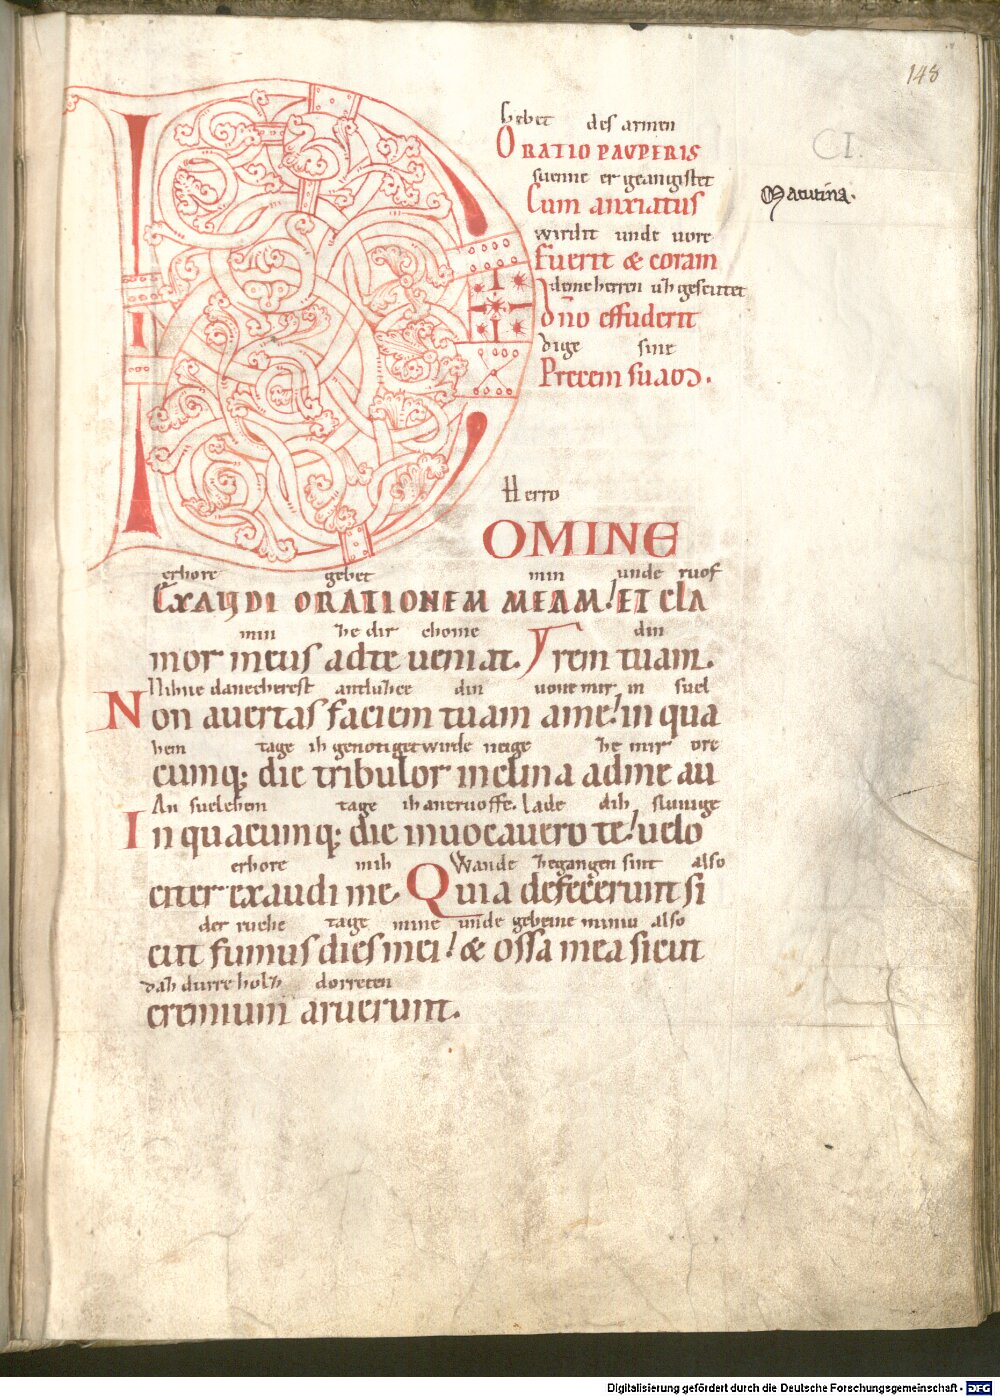 148
CI.
Matutina.
Gebet des armen
ORATIO PAVPERIS
suenne er geangistet
Cum anxiatus
wirdit unde uore
fuerit & coram
deme herren uzgescutet
dño effuderit
dige sine
Precem suam.
Herro
DOMINE
erhore gebet min unde ruof
EXAUDI ORATIONEM MEAM! ET CLA
min ze dir chome din
mor meus ad te ueniat. rem tuam.
Nibine danecherest antluzce din uone mir in suel
Non auertas faciem tuam a me! in qua
hem tage ih genotiget wirde neige ze mir ore
cumq; die tribulor inclina ad me au
An suelehem tage ih aneruoffe. lade dih sliunige
In quacumq; die inuocauero te! uelo
erhore mih Wande zegangen sint also
citer exaudi me. Quia defecerunt si
der rouhe tage mine unde gebeine miniu also
cut fumus dies mei! & ossa mea sicut
daz durre holz dorreten
cremium aruerunt.
Digitalisierung gefördert durch die Deutsche Forschungsgemeinschaft - DFG